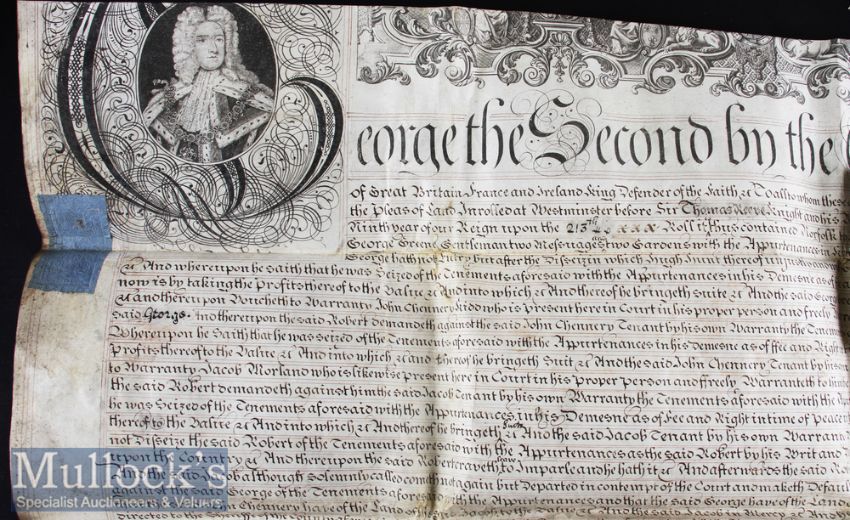 George the Second by the
of Great Britain France and Ireland King Defender of the Faith &c To all to whom these
the Pleas of Land Inrolled at Westminster before Sir Thomas Reeve Knight and his
Ninth year of our Reign upon the Roll it is thus contained Norfolk to
George Greene Gentleman two Messuages two Gardens with the Appurtenances in
George hath not Entry but after the Disseizin which Hugh Hunt thereof
&c And whereupon he saith that he was Seized of the Tenements aforesaid with the Appurtenances in his Demesne as of
now is by taking the Profits thereof to the Value &c And into which &c And thereof he bringeth suite &c And the said George
&c and thereupon Voucheth to Warranty John Chennery who is present here in Court in his proper person and freely
said George. And thereupon the said Robert demandeth against the said John Chennery Tenant by his own Warranty the Tenements
Whereupon he Saith that he was Seized of the Tenements aforesaid with the Appurtenances in his Demesne as of ffee and Right
Profits thereof to the Value &c And into which &c and thereof he bringeth Suit &c And the said John Chennery Tenant by his own
to Warranty Jacob Morland who is likewise present here in Court in his proper person and freely Warranteth to him
the said Robert demandeth against him the said Jacob Tenant by his own Warranty the Tenements aforesaid with the
he was Seized of the Tenements aforesaid with the Appurtenances in his Demesne as of Fee and Right in time of Peace
thereof to the Value &c And into which &c And thereof he bringeth Suit &c And the said Jacob Tenant by his own Warranty
not Disseize the said Robert of the Tenements aforesaid with the Appurtenances as the said Robert by his Writ and
upon the Country &c And thereupon the said Robert craveth to Imparle and he hath it &c And afterwards the said
And the said Jacob although solemnly called cometh not again but departed in contempt of the Court and maketh Default
against the said George of the Tenements aforesaid with the Appurtenances and that the said George have of the Land
Chennery have of the Land of the said Jacob to the Value &c And the said Jacob in Mercy &c And
directed to the Sheriff
Mullock's
Specialist Auctioneers & Valuers